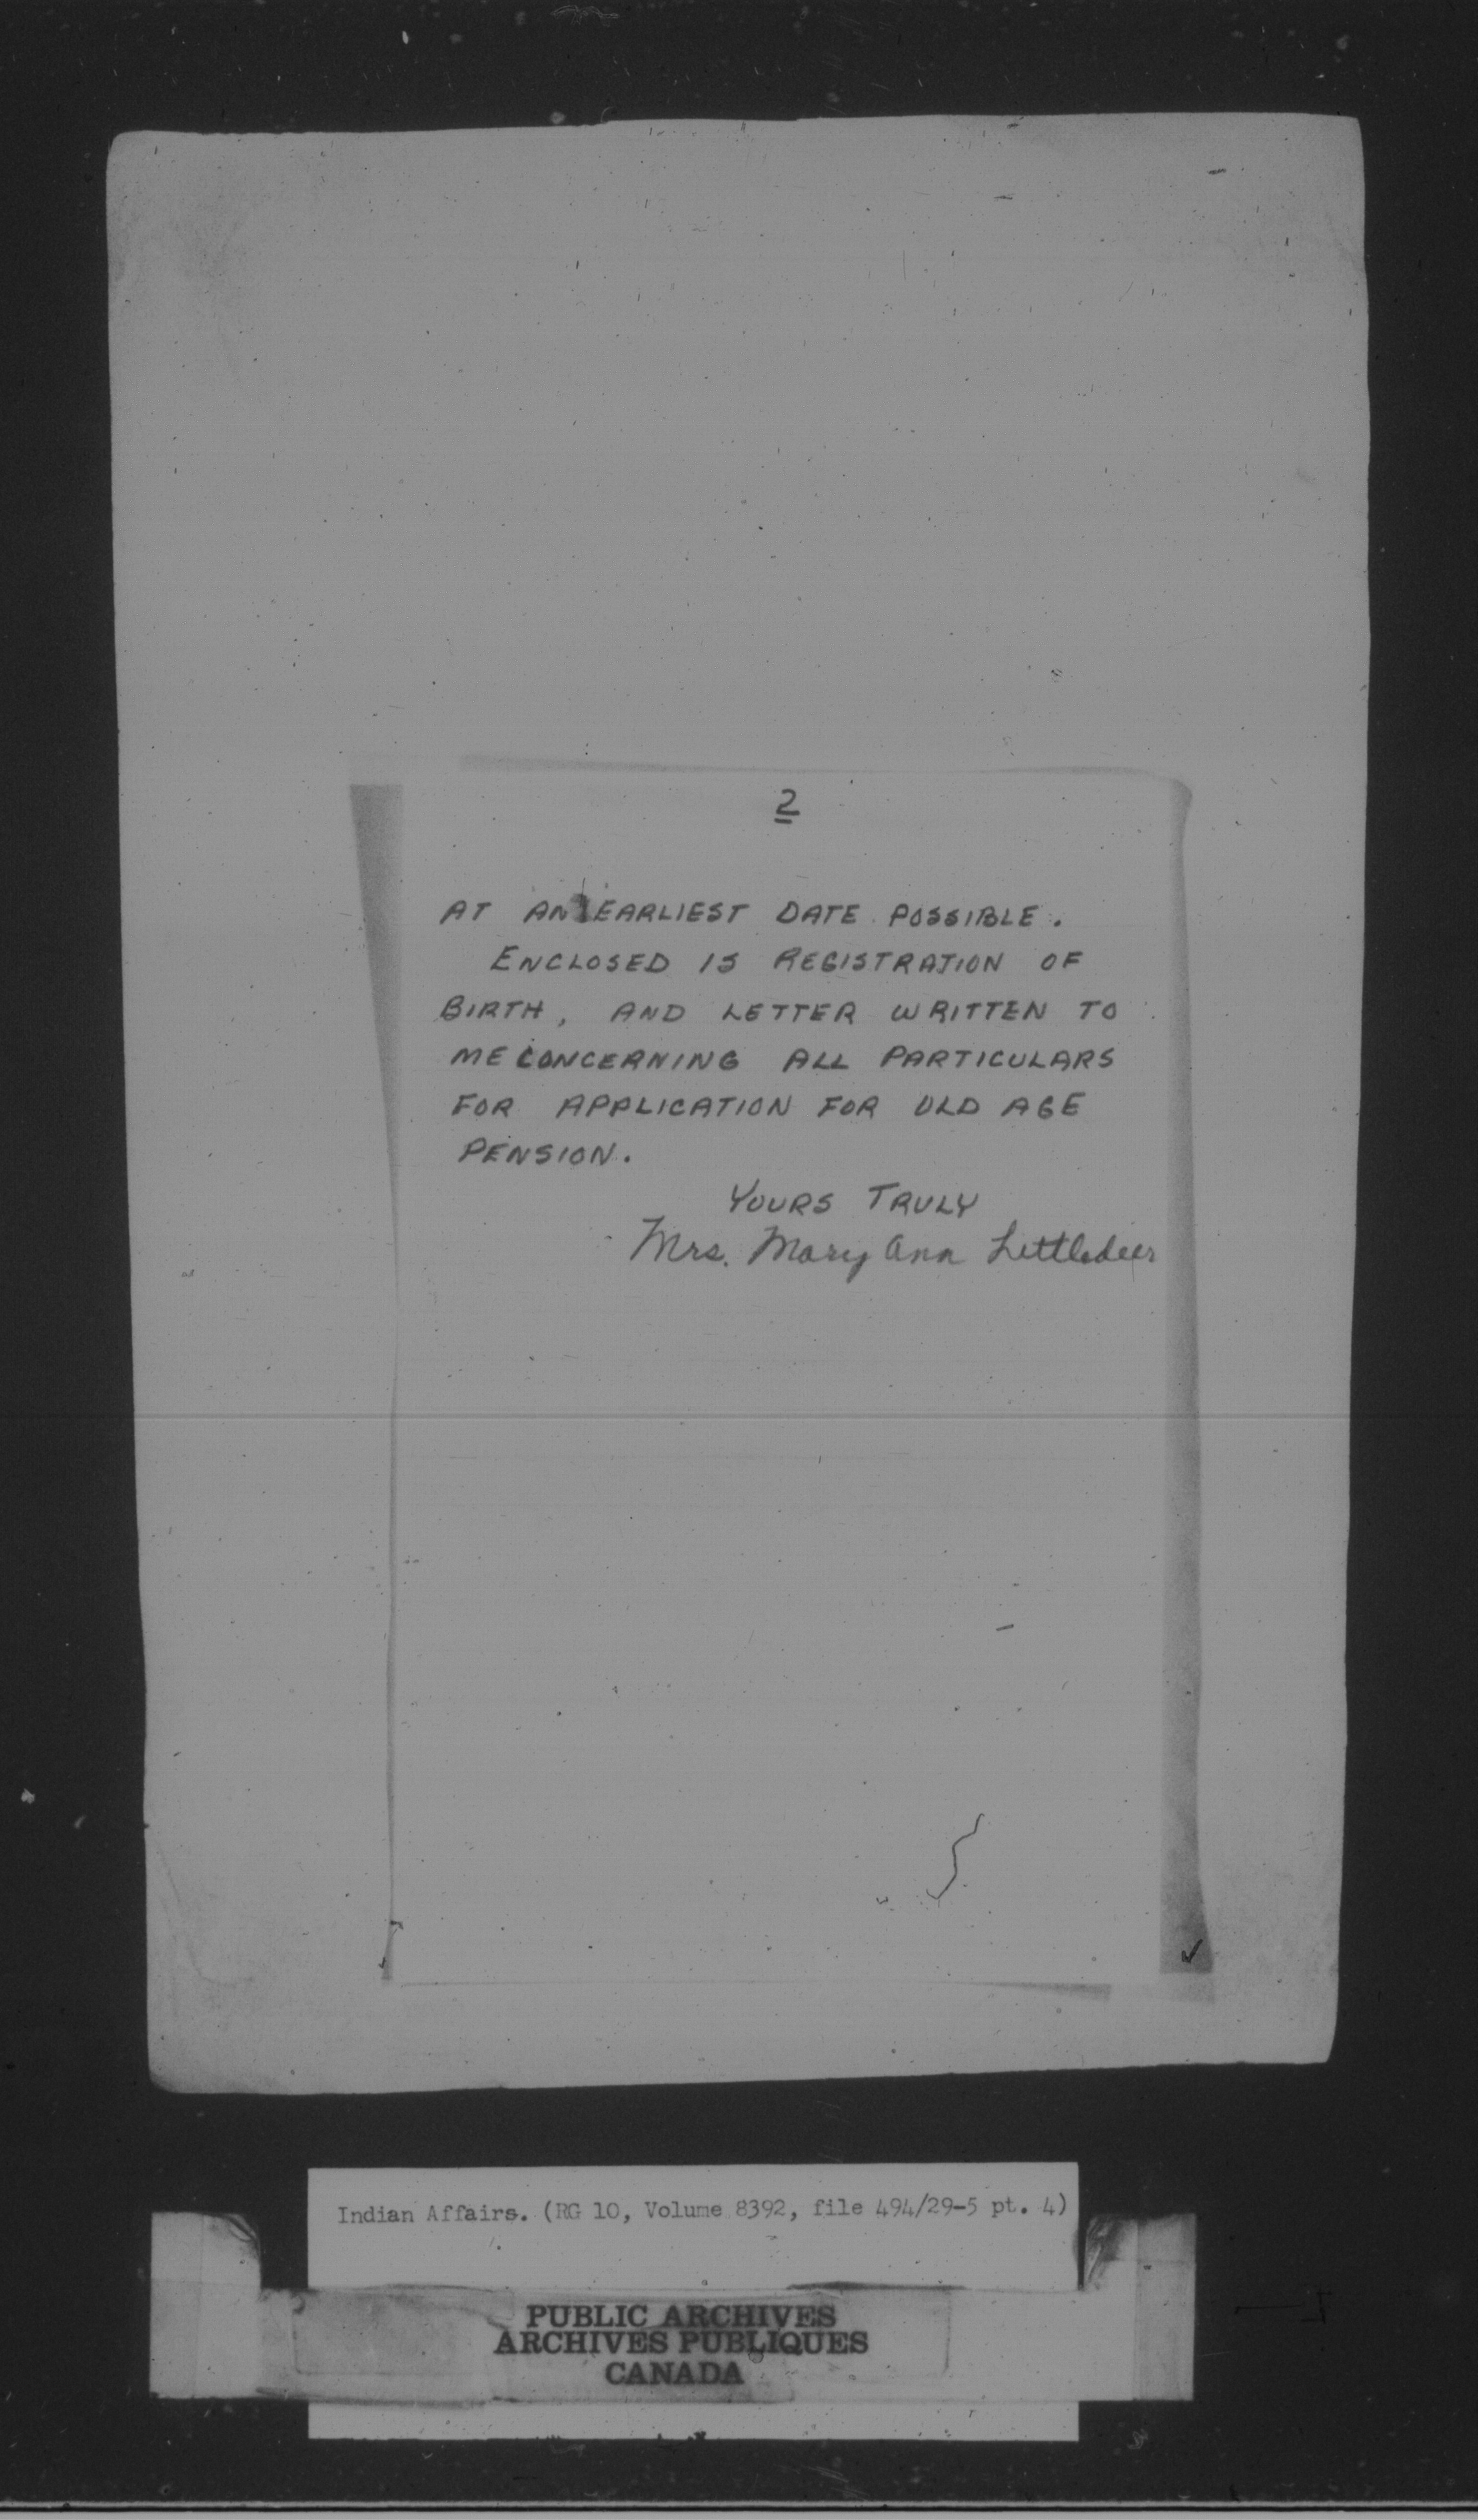 2
AT AN EARLIEST DATE POSSIBLE.
ENCLOSED IS REGISTRATION OF
BIRTH, AND LETTER WRITTEN TO
ME CONCERNING ALL PARTICULARS
FOR APPLICATION FOR OLD AGE
PENSION.
YOURS TRULY
Mrs. Mary Ann Littledeer
Indian Affairs. (RG 10, Volume 8392, file 494/29-5 pt. 4)
PUBLIC ARCHIVES
ARCHIVES PUBLIQUES
CANADA